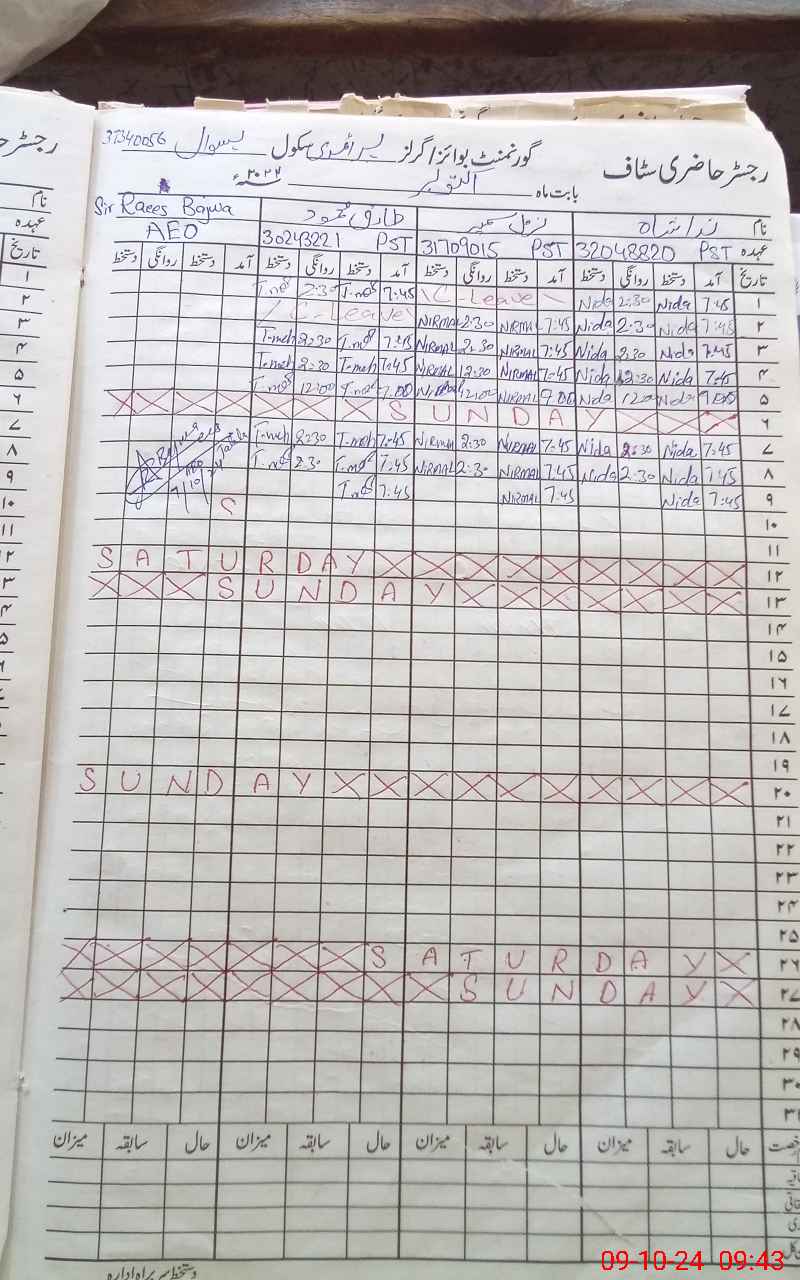 رجسٹر حاضری سٹاف
گورنمنٹ بوائز/گرلز پرائمری سکول بسوال 37340056
بابت ماہ اکتوبر ۲۰۲۴ء
نام ندا شاہ نرمل سمیر طارق محمود Sir Raees Bajwa
عہدہ 32048820 PST 31709015 PST 30243221 PST AEO
تاریخ آمد دستخط روانگی دستخط آمد دستخط روانگی دستخط آمد دستخط روانگی دستخط آمد دستخط روانگی دستخط
۱ 7:45 Nida 2:30 Nida \C-Leave\ 7:45 T.meh 2:30 T.meh
۲ 7:45 Nida 2:30 Nida 7:45 NIRMAL 2:30 NIRMAL /C-Leave\
۳ 7:45 Nida 2:30 Nida 7:45 NIRMAL 2:30 NIRMAL 7:45 T.meh 2:30 T.meh
۴ 7:45 Nida 12:30 Nida 7:45 NIRMAL 12:30 NIRMAL 7:45 T.meh 2:30 T.meh
۵ 9:00 Nida 12:00 Nida 9:00 NIRMAL 12:00 NIRMAL 9:00 T.meh 12:00 T.meh
۶ X X X X X X X S U N D A Y X X X
۷ 7:45 Nida 2:30 Nida 7:45 NIRMAL 2:30 NIRMAL 7:45 T.meh 2:30 T.meh
۸ 7:45 Nida 2:30 Nida 7:45 NIRMAL 2:30 NIRMAL 7:45 T.meh 2:30 T.meh
7/10/24
۹ 7:45 Nida 7:45 NIRMAL 7:45 T.meh
۱۰ S
۱۱
۱۲ S A T U R D A Y X X X X X X X X X
۱۳ X X X S U N D A Y X X X X X X X
۱۴
۱۵
۱۶
۱۷
۱۸
۱۹
۲۰ S U N D A Y X X X X X X X X X X
۲۱
۲۲
۲۳
۲۴
۲۵
۲۶ X X X X X X X S A T U R D A Y X
۲۷ X X X X X X X X X S U N D A Y X
۲۸
۲۹
۳۰
۳۱
حال سابقہ میزان حال سابقہ میزان حال سابقہ میزان حال سابقہ میزان
دستخط سربراہ ادارہ
09-10-24 09:43